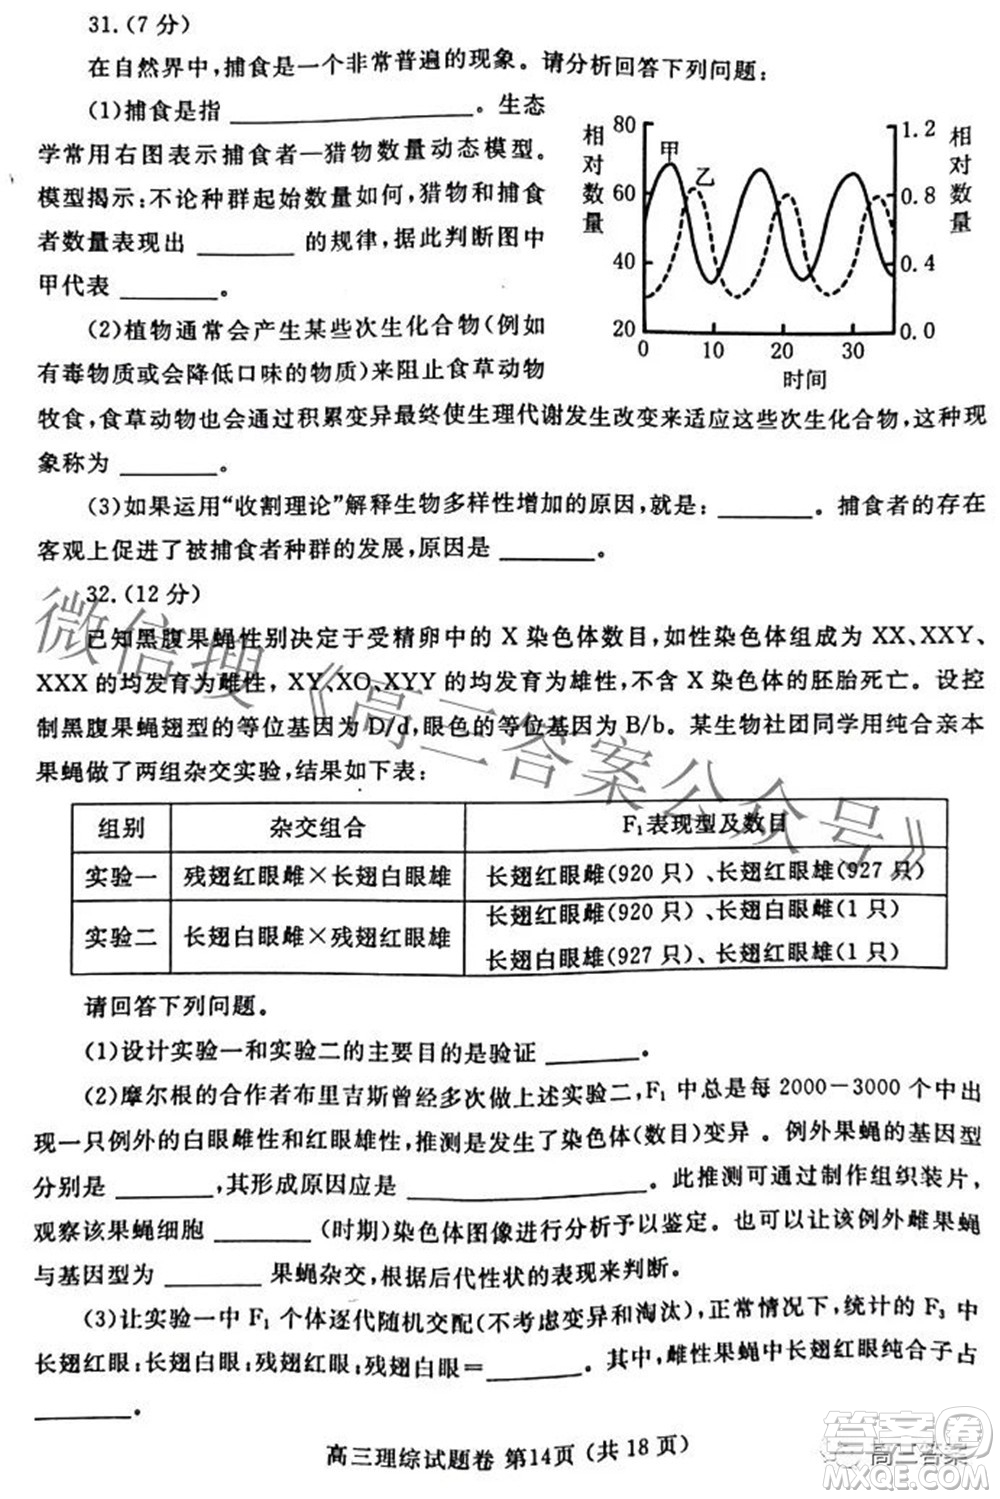 31.(7分)
在自然界中,捕食是一个非常普遍的现象。请分析回答下列问题:
(1)捕食是指 ________。生态
学常用右图表示捕食者—猎物数量动态模型。
模型揭示:不论种群起始数量如何,猎物和捕食
者数量表现出 ________ 的规律,据此判断图中
甲代表 ________。
相对数量
80
60
40
20
甲
乙
1.2
0.8
0.4
0.0
相对数量
0 10 20 30
时间
(2)植物通常会产生某些次生化合物(例如
有毒物质或会降低口味的物质)来阻止食草动物
牧食,食草动物也会通过积累变异最终使生理代谢发生改变来适应这些次生化合物,这种现
象称为 ________。
(3)如果运用“收割理论”解释生物多样性增加的原因,就是: ________。捕食者的存在
客观上促进了被捕食者种群的发展,原因是 ________。
32.(12分)
已知黑腹果蝇性别决定于受精卵中的 X 染色体数目,如性染色体组成为 XX、XXY、
XXX 的均发育为雌性,XY、XO、XYY 的均发育为雄性,不含 X 染色体的胚胎死亡。设控
制黑腹果蝇翅型的等位基因为 D/d,眼色的等位基因为 B/b。某生物社团同学用纯合亲本
果蝇做了两组杂交实验,结果如下表:
组别 杂交组合 F₁表现型及数目
实验一 残翅红眼雌×长翅白眼雄 长翅红眼雌(920 只)、长翅红眼雄(927 只)
实验二 长翅白眼雌×残翅红眼雄 长翅红眼雌(920 只)、长翅白眼雌(1 只)
长翅白眼雄(927 只)、长翅红眼雄(1 只)
请回答下列问题。
(1)设计实验一和实验二的主要目的是验证 ________。
(2)摩尔根的合作者布里吉斯曾经多次做上述实验二,F₁ 中总是每 2000-3000 个中出
现一只例外的白眼雌性和红眼雄性,推测是发生了染色体(数目)变异 。例外果蝇的基因型
分别是 ________,其形成原因应是 ________。此推测可通过制作组织装片,
观察该果蝇细胞 ________ (时期)染色体图像进行分析予以鉴定。也可以让该例外雌果蝇
与基因型为 ________ 果蝇杂交,根据后代性状的表现来判断。
(3)让实验一中 F₁ 个体逐代随机交配(不考虑变异和淘汰),正常情况下,统计的 F₃ 中
长翅红眼:长翅白眼:残翅红眼:残翅白眼= ________。其中,雌性果蝇中长翅红眼纯合子占
________。
高三理综试题卷 第14页 (共 18 页)
微信搜《高三答案公众号》
高三答案
答案圈
MXQE.COM